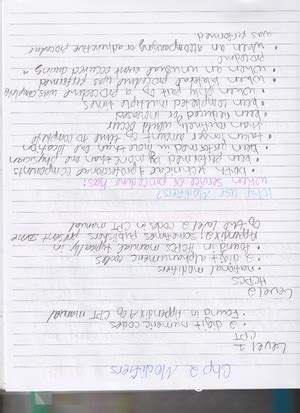 Chp 2 Modifiers
Level 1
CPT
• 2 digit numeric codes
• Found in Appendix A of CPT manual
Level 2
HCPCS
• national modifiers
• 2 digit alphanumeric codes
• found in HCPCS manual, typically in
Appendix 2; sometimes publishers present some
of the level 2 codes in CPT manual
Why use Modifiers?
When service or procedure has:
• both technical & professional components
• been performed by more than one physician
• been performed in more than one location
• taken longer amount of time to complete
than routinely would occur
• been reduced or increased
• been completed multiple times
• when only part of a procedure was complete
• when bilateral procedure was performed
• when an unusual event occured during
procedure
• when an accompanying or adjunctive procedure
was performed